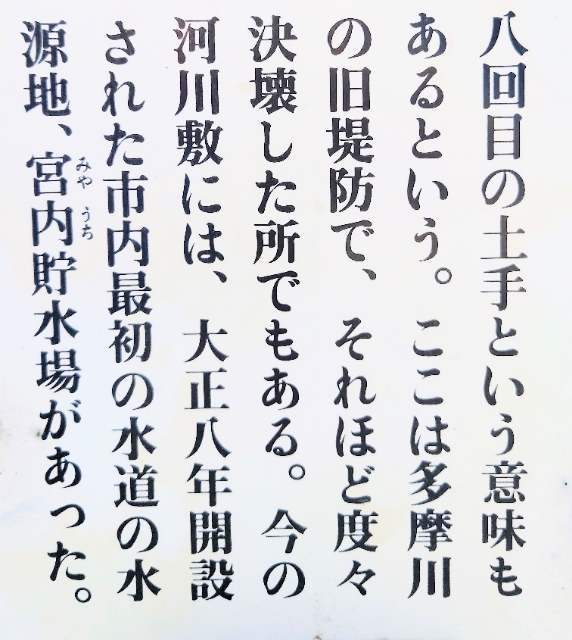 八回目の土手という意味も
あるという。ここは多摩川
の旧堤防で、それほど度々
決壊した所でもある。今の
河川敷には、大正八年開設
された市内最初の水道の水
源地、宮内貯水場があった。
みや うち